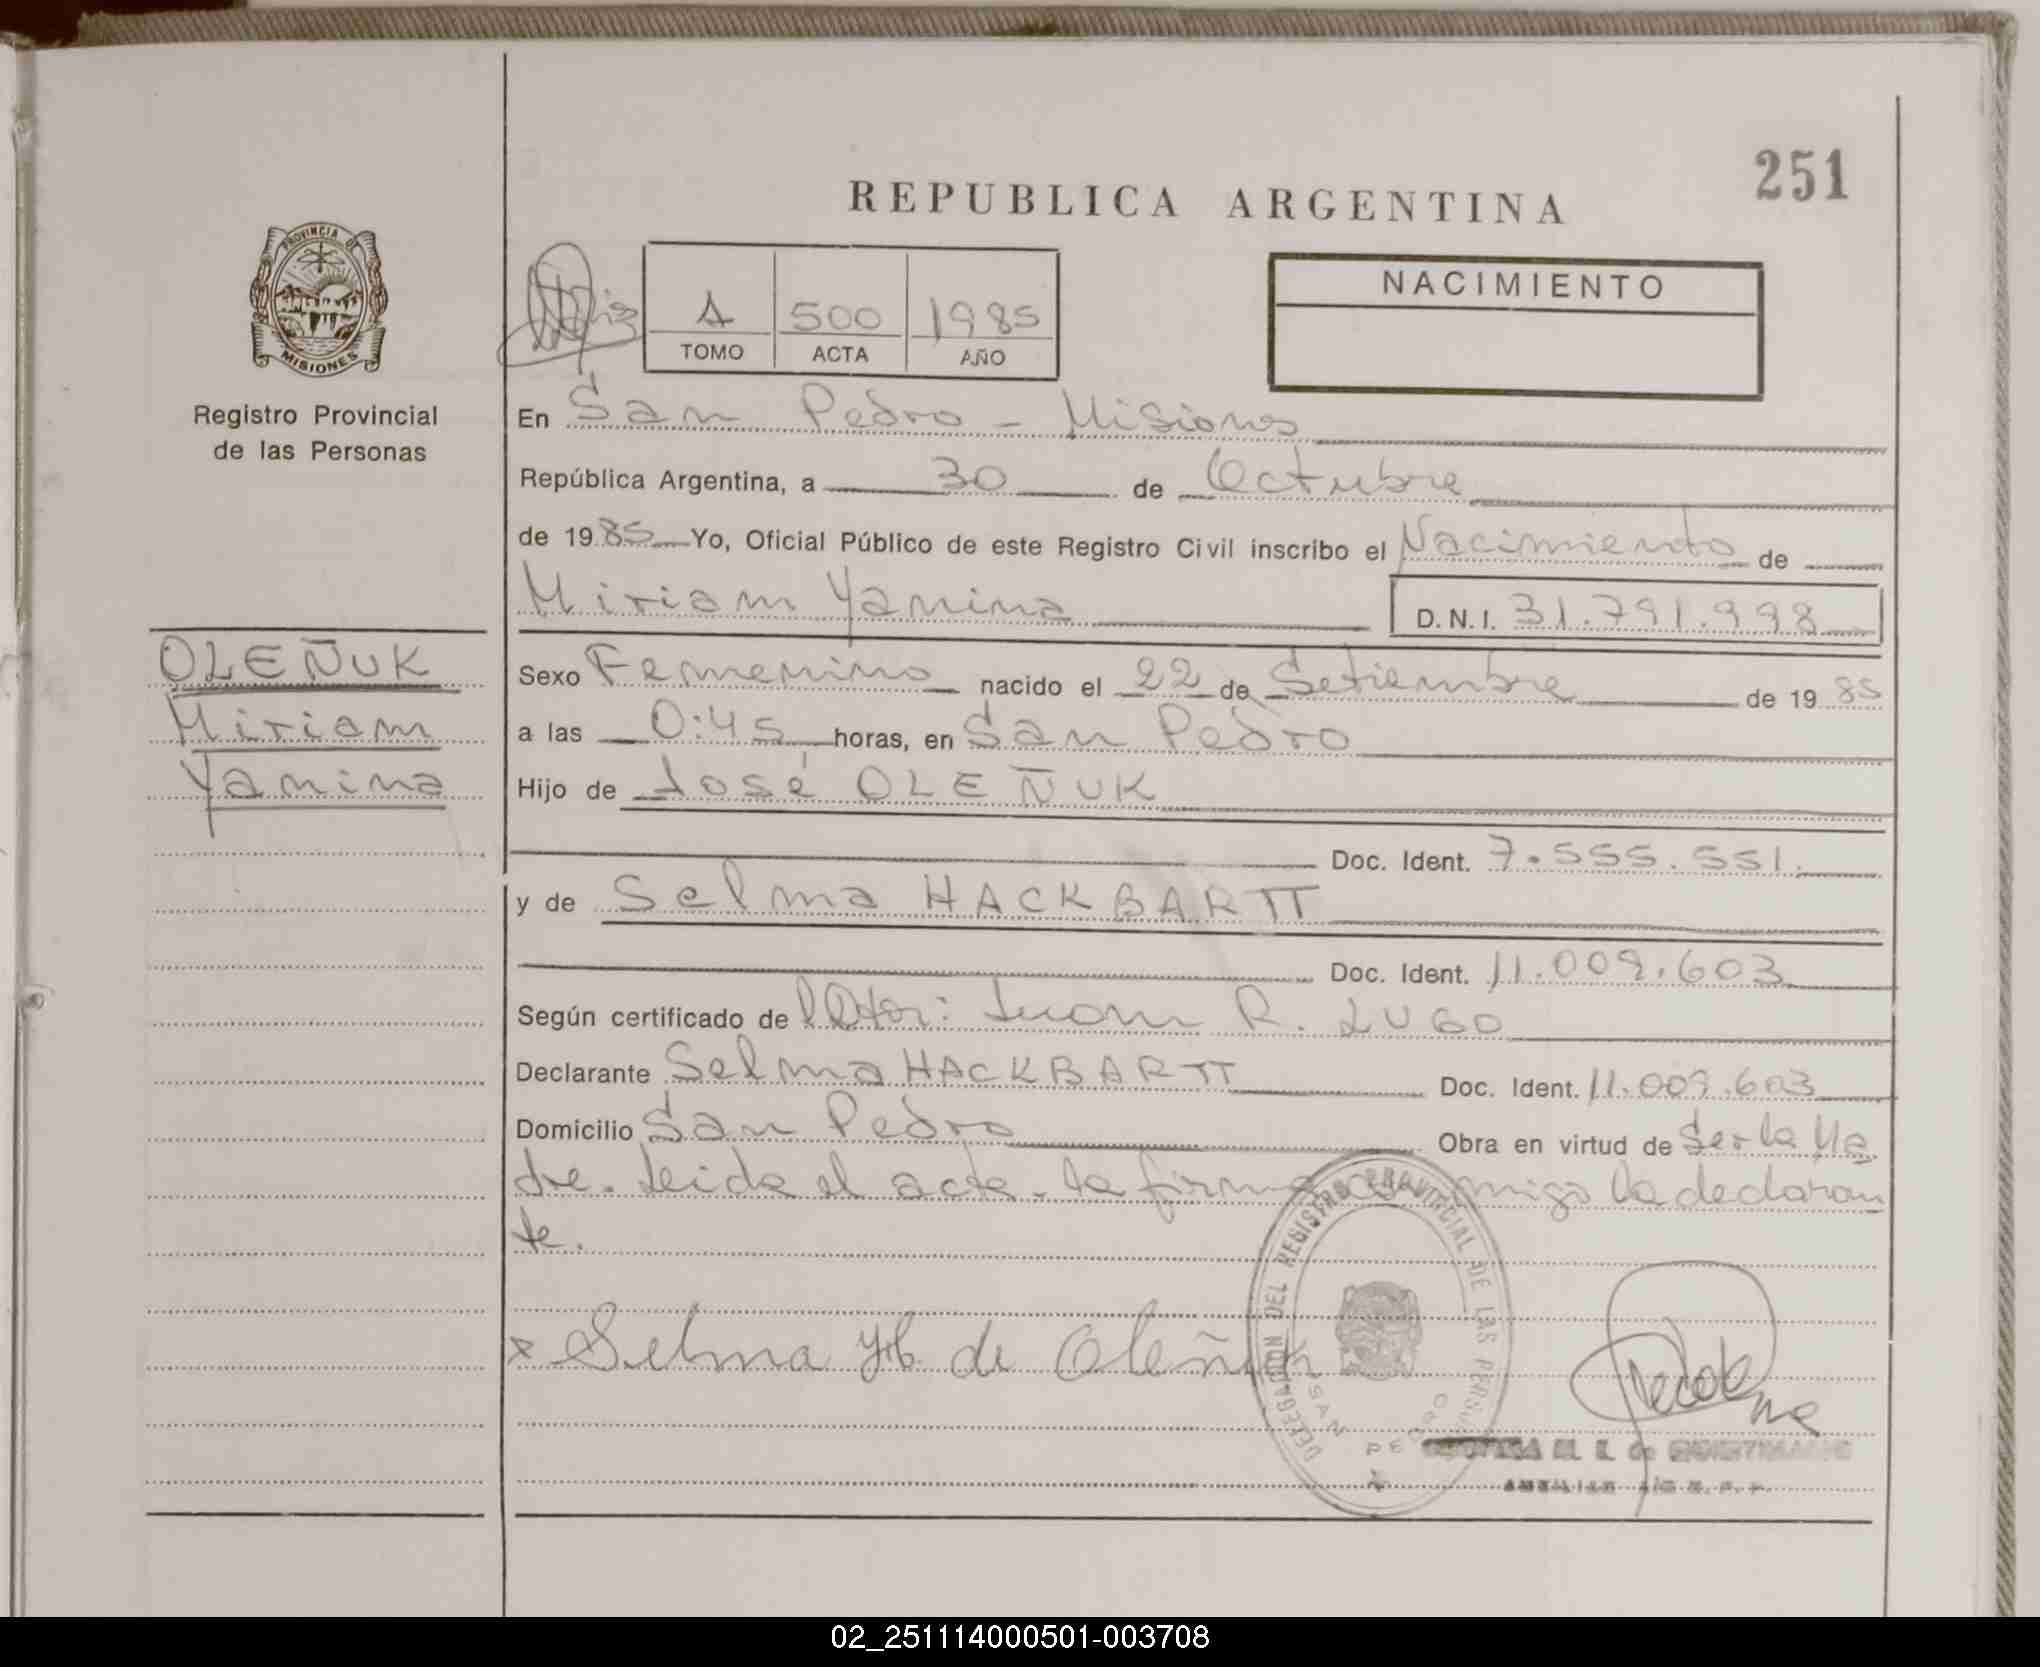 251
REPUBLICA ARGENTINA
PROVINCIA DE
MISIONES
Registro Provincial
de las Personas
A 500 1985
TOMO ACTA AÑO
NACIMIENTO
En San Pedro - Misiones
República Argentina, a 30 de Octubre
de 1985 Yo, Oficial Público de este Registro Civil inscribo el Nacimiento de
Miriam Yanina D.N.I. 31.791.998
OLEÑUK
Miriam
Yanina
Sexo Femenino nacido el 22 de Setiembre de 1985
a las 0:45 horas, en San Pedro
Hijo de José OLEÑUK
Doc. Ident. 7.555.551.
y de Selma HACKBARTT
Doc. Ident. 11.009.603
Según certificado de Juan R. LUGO
Declarante Selma HACKBARTT Doc. Ident. 11.009.603
Domicilio San Pedro Obra en virtud de Ser la Ma
dre. Leida el acta. La firma conmigo la declaran
te.
x Selma H. de Oleñuk
DELEGACION DEL REGISTRO PROVINCIAL DE LAS PERSONAS
SAN PEDRO
02_251114000501-003708